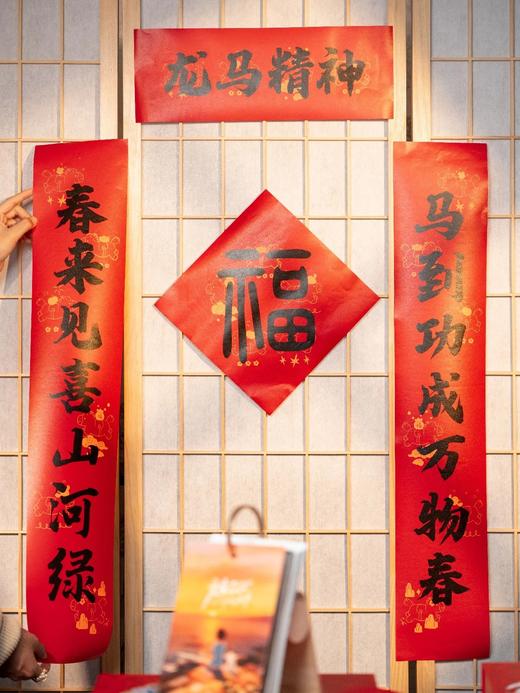 龙马精神
马到功成万物春
福
春来见喜山河绿